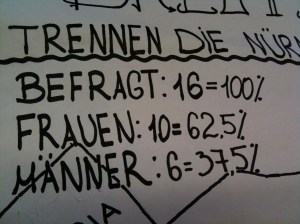 TRENNEN DIE
BEFRAGT: 16=100%
FRAUEN: 10=62.5%
MÄNNER: 6=37,5%